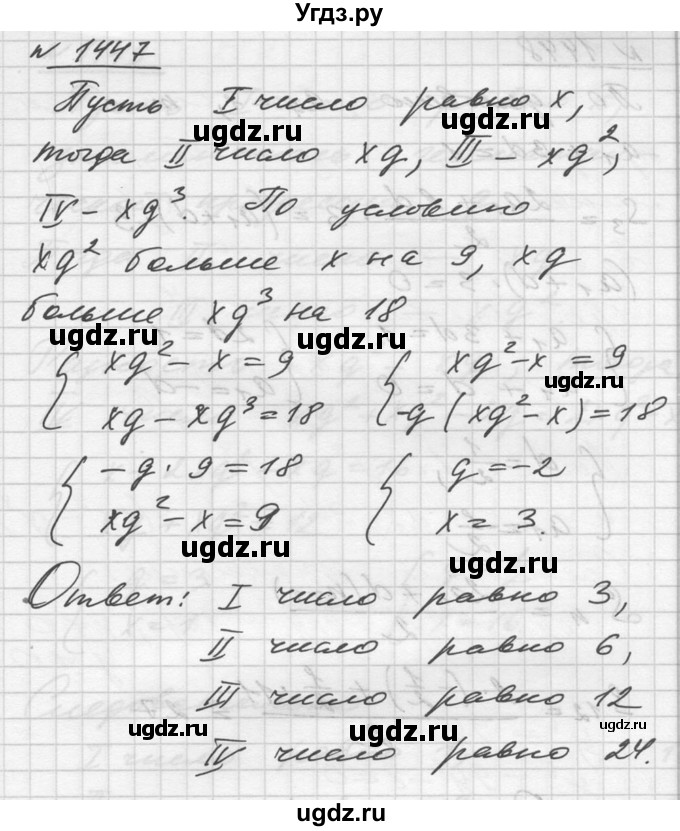 Угдз.ру
№ 1447
Пусть I число равно x,
тогда II число xq, III – xq²,
IV – xq³. По условию
xq² больше x на 9, xq
больше xq³ на 18
{ xq² – x = 9
xq – xq³ = 18
{ xq² – x = 9
-q (xq² – x) = 18
{ – q · 9 = 18
xq² – x = 9
{ q = –2
x = 3.
Ответ: I число равно 3,
II число равно 6,
III число равно 12
IV число равно 24.
ugdz.ru
ugdz.ru
ugdz.ru
ugdz.ru
ugdz.ru
ugdz.ru
ugdz.ru
ugdz.ru
ugdz.ru
ugdz.ru
ugdz.ru
ugdz.ru
ugdz.ru
ugdz.ru